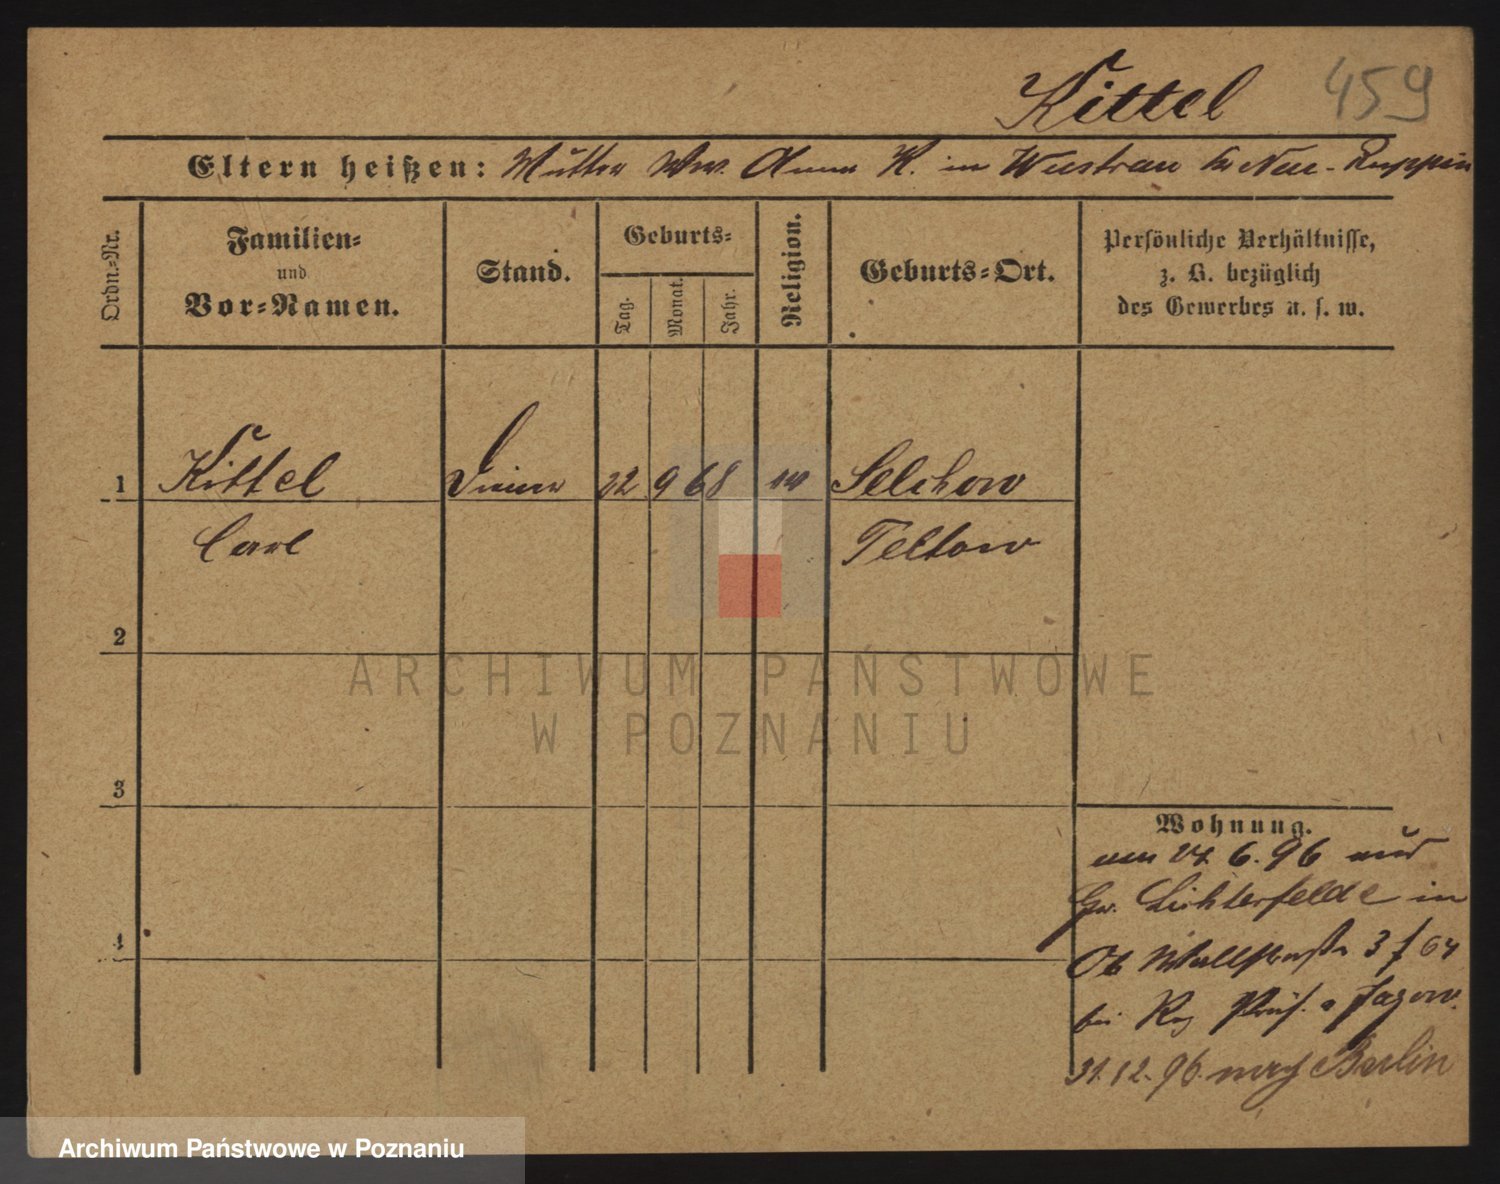 Kittel 459
Eltern heißen: Mutter Ww. Anna K. in Wustrau Kr Neu-Ruppin
Ordn.-Nr.
Familien-
und
Vor-Namen.
Stand.
Geburts-
Tag.
Monat.
Jahr.
Religion.
Geburts-Ort.
Persönliche Verhältnisse,
z. B. bezüglich
des Gewerbes u. s. w.
1 Kittel Diener 22 9 68 Selchow
Carl Teltow
2
ARCHIWUM PAŃSTWOWE
W POZNANIU
3
Wohnung.
6. 96 aus
Gr. Lichterfelde in
4
3 f 64
bei Reg Präs. v Jagow.
31. 12. 96. nach Berlin
Archiwum Państwowe w Poznaniu